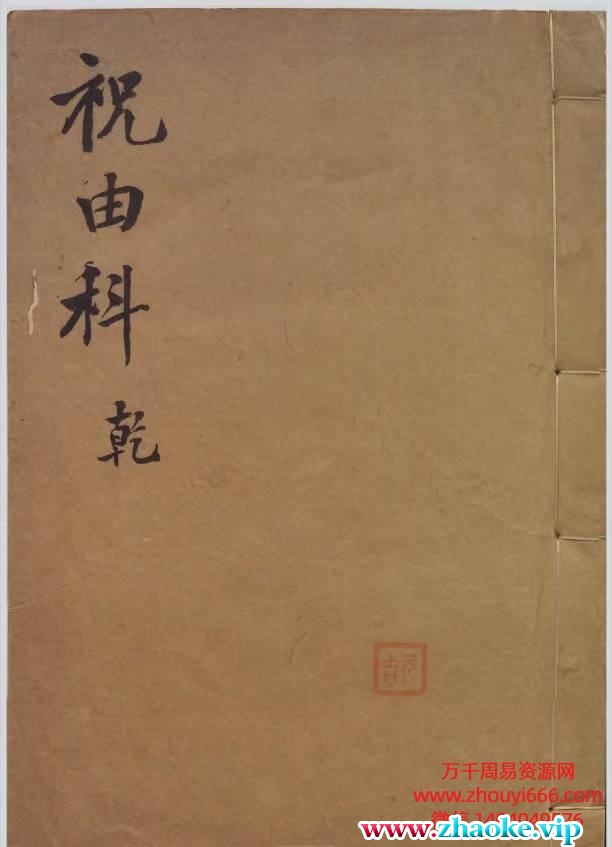 祝由科 乾
元吉
万千周易资源网
www.zhouyi666.com
www.zhaoke.vip